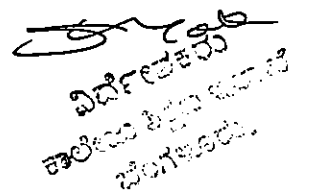 ನಿರ್ದೇಶಕರು
ಕಾಲೇಜು ಶಿಕ್ಷಣ ಇಲಾಖೆ
ಬೆಂಗಳೂರು.